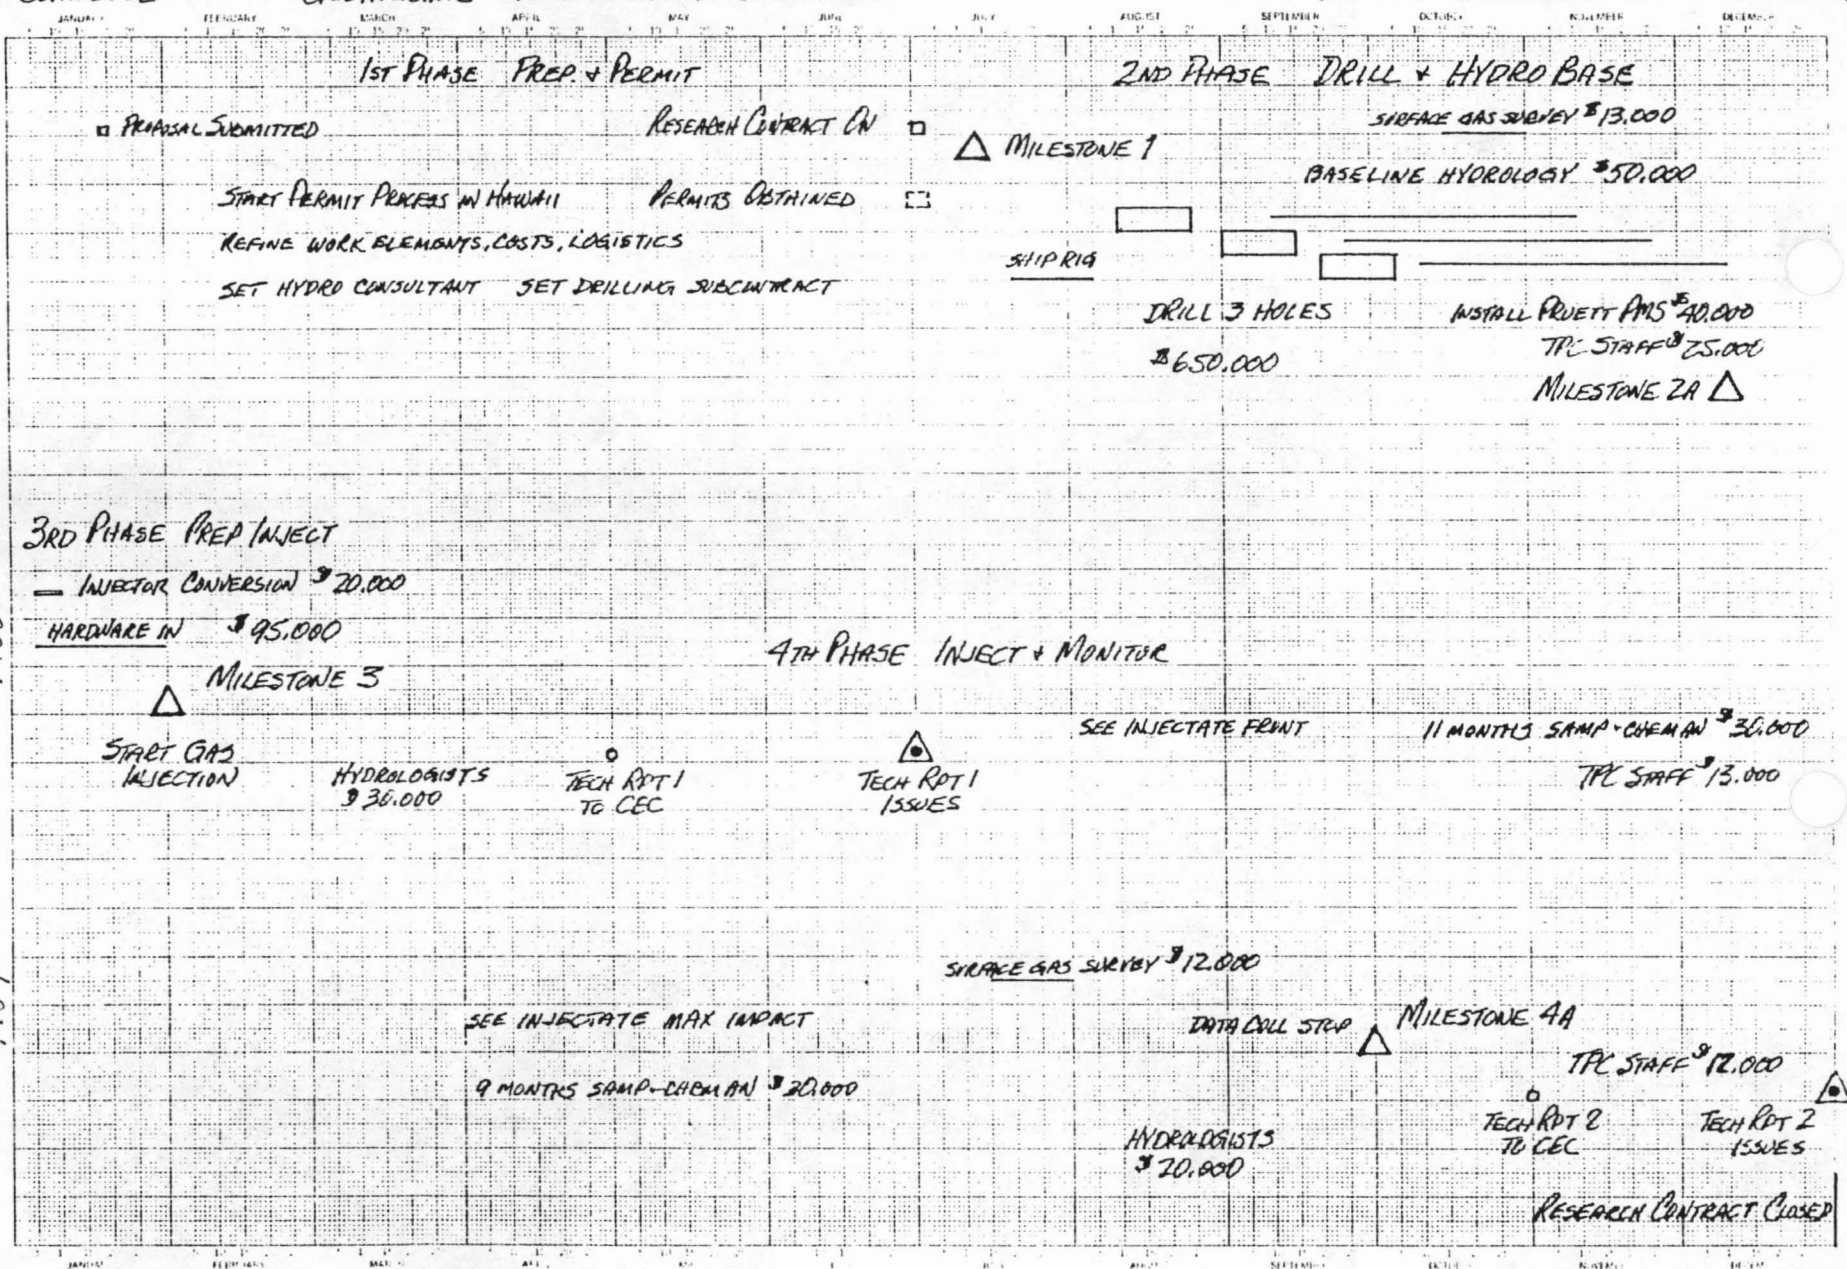 JANUARY FEBRUARY MARCH APRIL MAY JUNE JULY AUGUST SEPTEMBER OCTOBER NOVEMBER DECEMBER
1ST PHASE PREP. + PERMIT
2ND PHASE DRILL + HYDRO BASE
PROPOSAL SUBMITTED
RESEARCH CONTRACT ON
MILESTONE 1
SURFACE GAS SURVEY $13.000
BASELINE HYDROLOGY $50.000
START PERMIT PROCESS IN HAWAII
PERMITS OBTAINED
REFINE WORK ELEMENTS, COSTS, LOGISTICS
SHIP RIG
SET HYDRO CONSULTANT SET DRILLING SUBCONTRACT
DRILL 3 HOLES
$650.000
INSTALL PRUETT PMS $40.000
TPC STAFF $25.000
MILESTONE 2A
3RD PHASE PREP INJECT
INJECTOR CONVERSION $20.000
HARDWARE IN $95.000
MILESTONE 3
4TH PHASE INJECT + MONITOR
START GAS
INJECTION
HYDROLOGISTS
$30.000
TECH RPT 1
TO CEC
TECH RPT 1
ISSUES
SEE INJECTATE FRONT
11 MONTHS SAMP-CHEM AN $30.000
TPC STAFF $13.000
SURFACE GAS SURVEY $12.000
SEE INJECTATE MAX IMPACT
DATA COLL STOP
MILESTONE 4A
9 MONTHS SAMP-CHEM AN $20.000
TPC STAFF $12.000
HYDROLOGISTS
$20.000
TECH RPT 2
TO CEC
TECH RPT 2
ISSUES
RESEARCH CONTRACT CLOSED